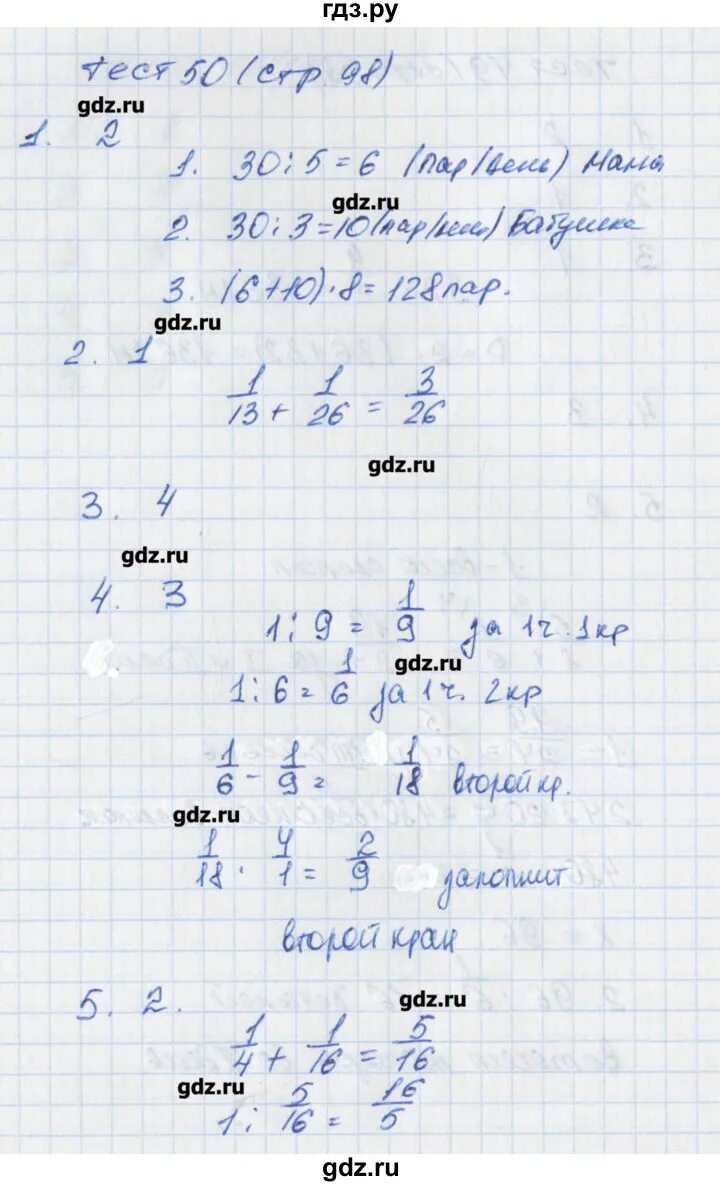 гдз.ру
Тест 50 (стр 98)
gdz.ru
1. 2
1. 30 : 5 = 6 (пар/день) Мама
gdz.ru
2. 30 : 3 = 10 (пар/день) Бабушка
3. (6+10)·8 = 128 пар.
gdz.ru
2. 1
1/13 + 1/26 = 3/26
gdz.ru
3. 4
gdz.ru
4. 3
1 : 9 = 1/9 за 1ч. 1кр
gdz.ru
1 : 6 = 1/6 за 1ч. 2кр
1/6 - 1/9 = 1/18 второй кр.
gdz.ru
1/18 · 4/1 = 2/9 заполнит
второй кран
gdz.ru
5. 2.
1/4 + 1/16 = 5/16
gdz.ru
1 : 5/16 = 16/5
gdz.ru